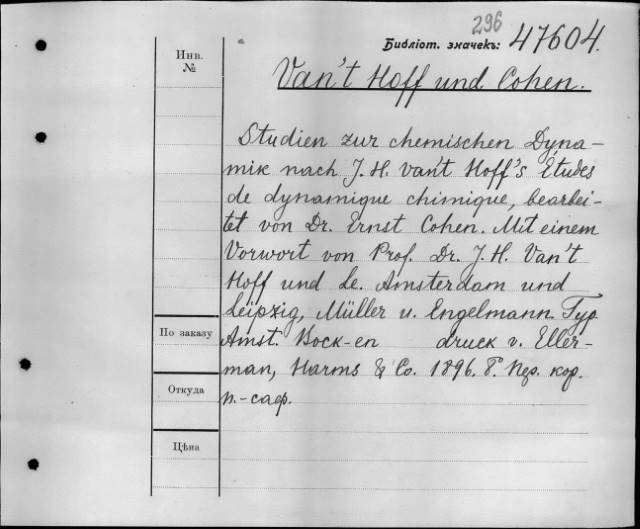 296
Библіот. значекъ: 47604.
Инв. №
Van't Hoff und Cohen.
Studien zur chemischen Dyna-
mik nach J. H. van't Hoff's Études
de dynamique chimique, bearbei-
tet von Dr. Ernst Cohen. Mit einem
Vorwort von Prof. Dr. J. H. Van't
Hoff und Le. Amsterdam und
Leipzig, Müller u. Engelmann. Typ.
По заказу
Amst. Bock-en druck v. Eller-
man, Harms & Co. 1896. 8°. Пер. кор.
Откуда
п.-саф.
Цѣна